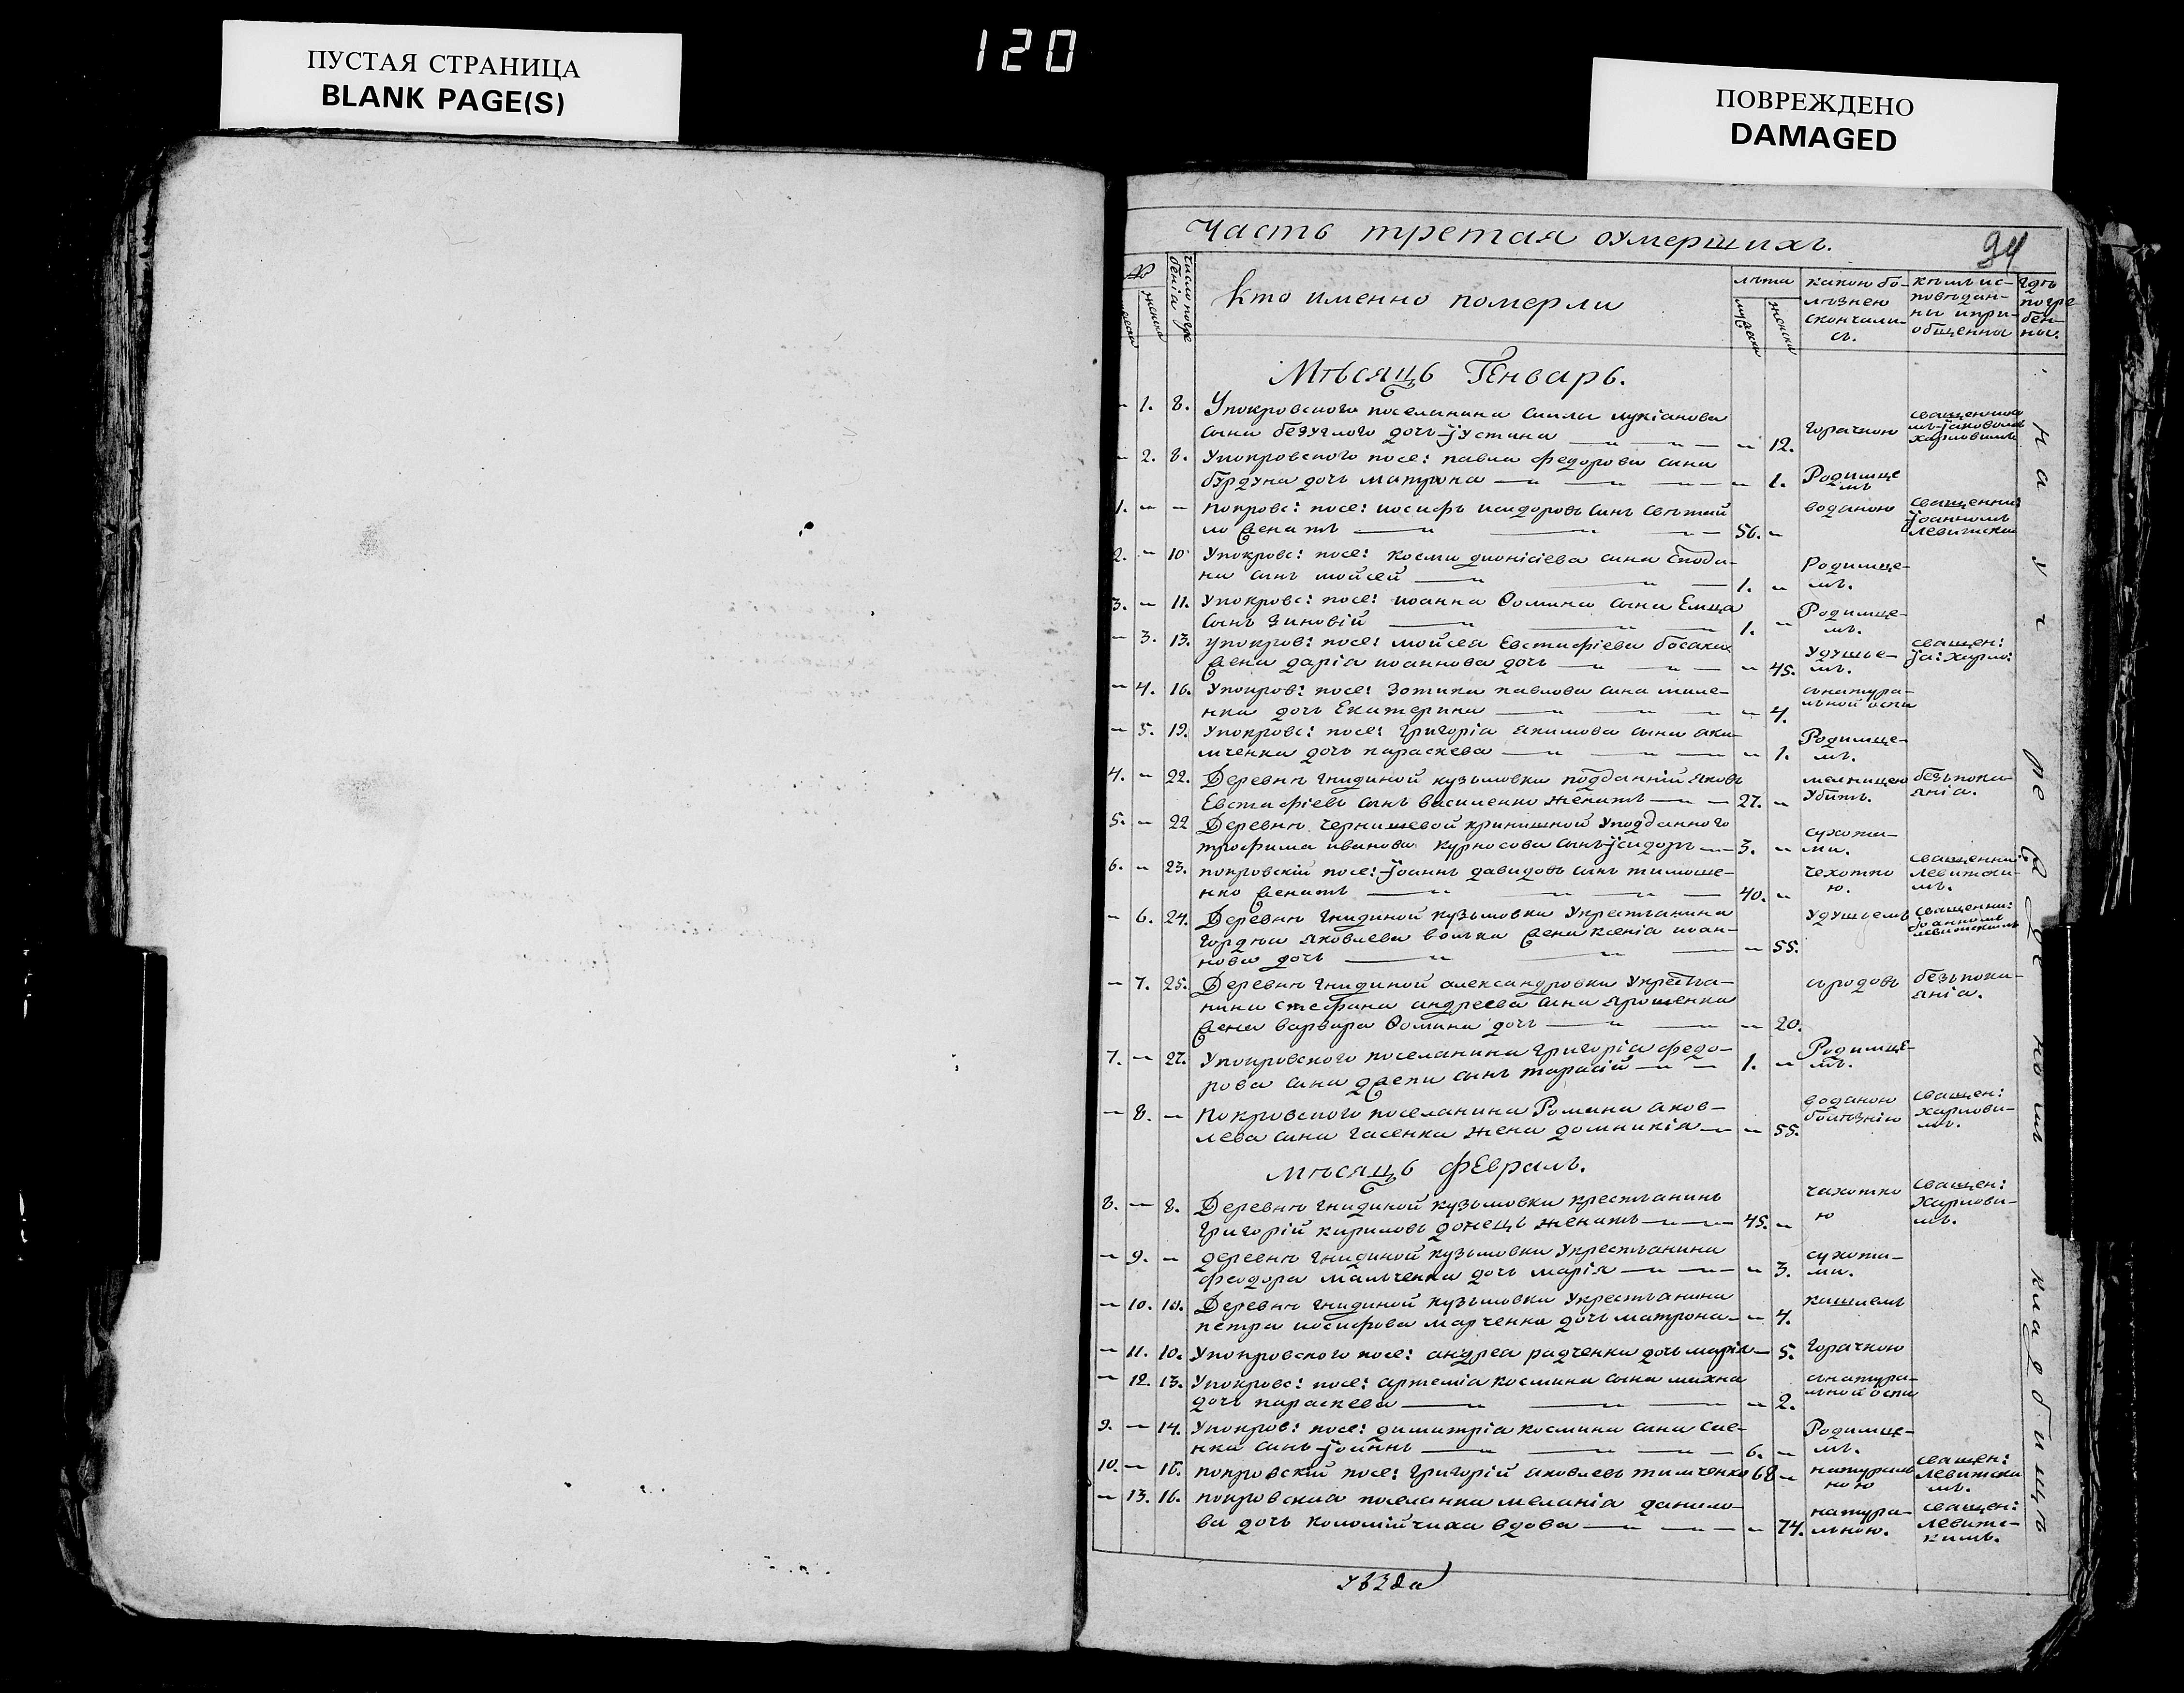 120
ПУСТАЯ СТРАНИЦА
BLANK PAGE(S)
ПОВРЕЖДЕНО
DAMAGED
Часть третая оумершихъ.
94
№
число погре
бенія
кто именно померли
лѣта
какою бо-
лѣзнею
скончали-
сь.
кѣмъ ис-
поведан-
ны и прі-
общенны
где
погре
бен-
ны.
женска
женска
Мѣсяцъ Генварь.
– 1. 8. Упокровского поселанина Саилы лукіанова
сына безуглого дочь јустина – 12. горачкою
– 2. 8. Упокровского посе: павла федорова сына
бурдуна дочь матрона – 1. Родимце
мъ
1. – – покровс: посе: иосифъ исидоровъ сынъ
женатъ 56. – воданою священни:
јоанномъ
левитски
2. – 10 Упокровс: посе: косми дионісіева сина
на синъ мойсей 1. – Родимце-
мъ.
3. – 11. Упокровс: посе: иоанна Ѳомина сына Емца
сынъ зиновій 1. – Родимце-
мъ.
– 3. 13. упокров: посе: мойсея Евстафіева босака
жена даріа иоаннова дочь – 45. удушье-
мъ. священ:
ја: харло:
– 4. 16. Упокров: посе: Зотика павлова сина миле-
нка дочь Екатерина – 4. натура-
льной оспи
– 5. 19. Упокровс: посе: Григоріа якимова сына яки-
мченка дочь параскева – 1. Родимце-
мъ.
4. – 22. Деревнѣ гнидиной кузьмовки подданній яковъ
Евстафіевъ сынъ василенко женатъ 27. – мелницею
убитъ. безъ пока-
янія.
5. – 22 Деревнѣ чернишевой криничной уподданного
трофима иванова курносова сынъ јсидоръ 3. – сухота-
ми.
6. – 23. покровскій посе: јоаннъ давидовъ сынъ тимоше-
нко женатъ 40. – чехотко
ю. священни:
левитски-
мъ.
– 6. 24. Деревнѣ гнидиной кузьмовки укрестьанина
гордѣа яковлева волка жена ксеніа иоан-
нова дочь – 55. удушьемъ священни:
јоанномъ
левитскимъ
– 7. 25. Деревнѣ гнидиной александровки укрестьа-
нина стефана андреева сина ярошенка
жена варвара Ѳомина дочь – 20. сродовъ безъ пока-
янія.
7. – 27. Упокровского поселанина григоріа федо-
рова сина сынъ тарасій 1. – Родимце-
мъ.
– 8. – Покровского поселанина Романа аков-
лева сина гасенка жена домникія – 55. воданою
болѣзнію священ:
харлови-
мъ.
Мѣсяцъ февраль.
8. – 8. Деревнѣ гнидиной кузьмовки крестьанинъ
григорій кириловъ донецъ женатъ 45. – чахотко
ю священ:
харлови-
мъ.
– 9. – деревнѣ гнидиной кузьмовки укрестьанина
феодора мальченка дочь марія – 3. сухота-
ми.
– 10. 10. Деревнѣ гнидиной кузьмовки укрестьанина
петра иосифова марченка дочь матрона – 4. кашлемъ
– 11. 10. Упокровского посе: андреа радченка дочь марія – 5. горачкою
– 12. 13. Упокровс: посе: артеміа космина сына махна
дочь параскева – 2. натура-
льной оспи
9. – 14. Упокров: посе: димитріа космина сина сае-
нка синъ јоаннъ 6. – Родимце-
мъ.
10. – 16. покровскій посе: григорій яковлевъ тимченко 68 – натураль
ною священ:
левитски
мъ.
– 13. 16. покровскиа поселанка меланіа данило-
ва дочь коломійчиха вдова – 74. натура-
льною. священ:
левитс-
кимъ.
на кладбищѣ